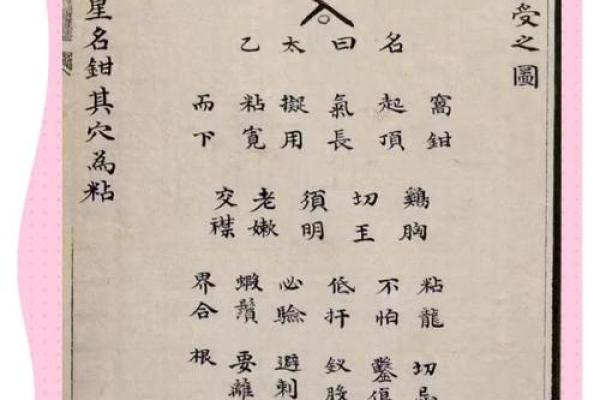 受之圖
窩鉗鷄胸粘龍切忌
名起頂切王不怕鑿傷
曰氣長須明低扞釵股
太擬用老嫩必驗避刺
乙粘寬交襟蝦鬚要離
而下界合根
星名鉗其穴為粘